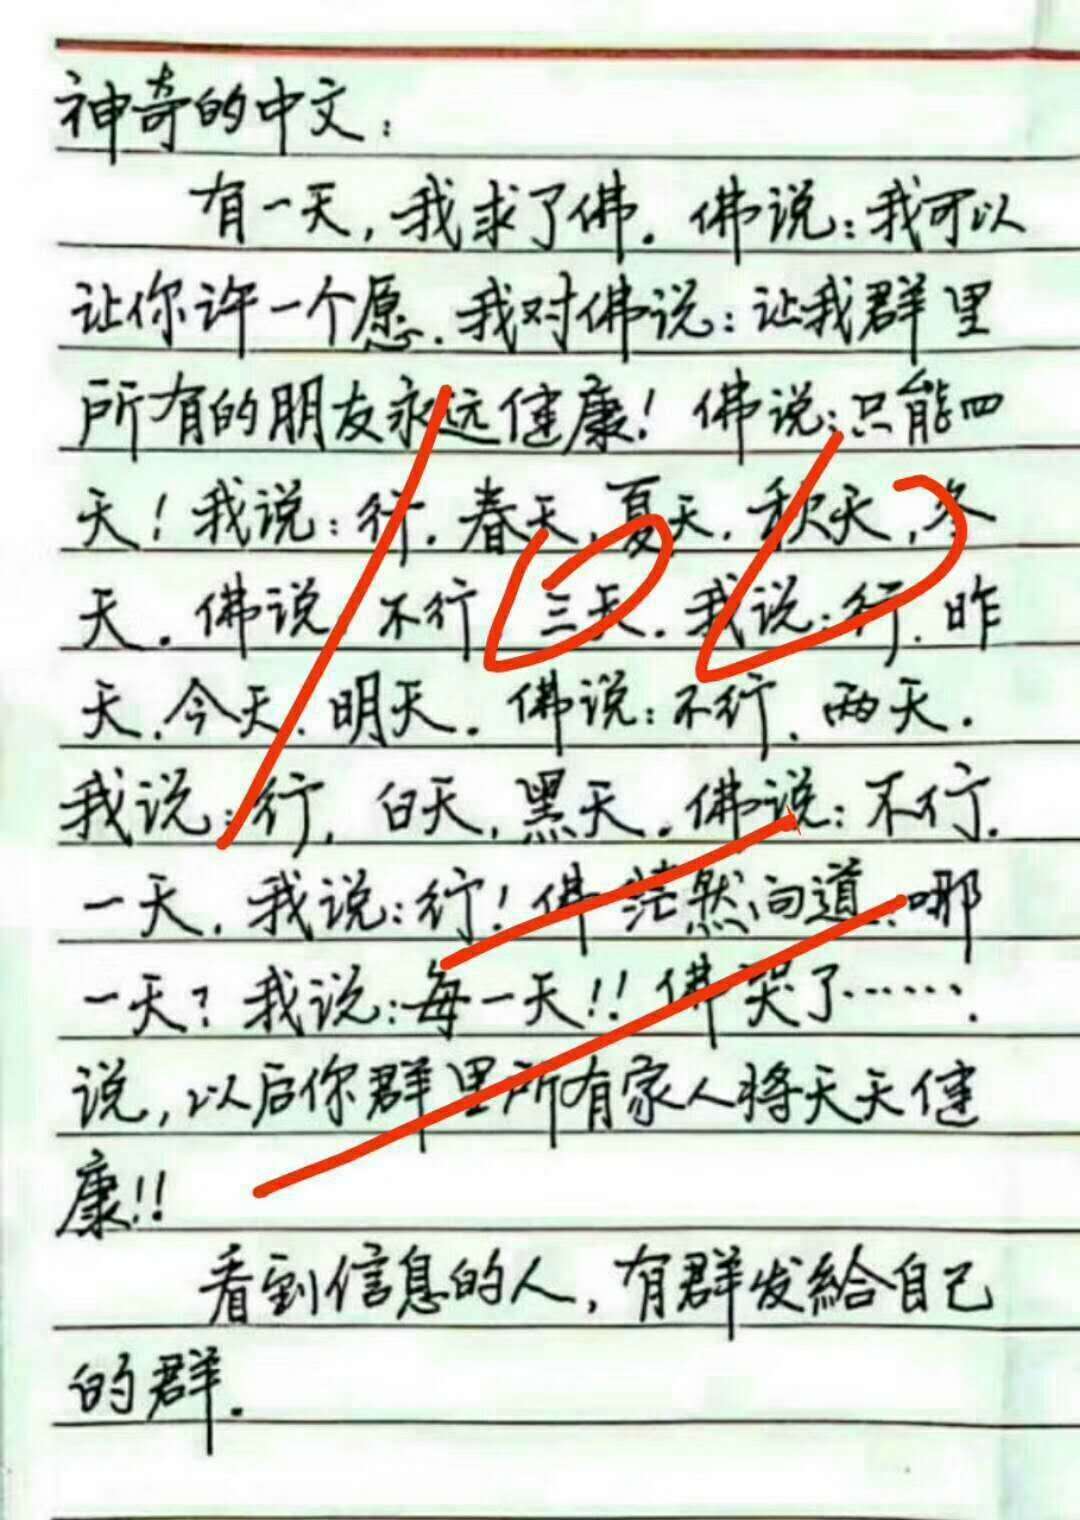 神奇的中文：
有一天，我求了佛．佛说：我可以
让你许一个愿．我对佛说：让我群里
所有的朋友永远健康！佛说：只能四
天！我说：行．春天，夏天，秋天，冬
天．佛说 不行 三天．我说：行．昨
天．今天．明天．佛说：不行．两天．
我说：行．白天，黑天．佛说：不行．
一天．我说：行！佛茫然问道：哪
一天？我说：每一天！！佛哭了……．
说，以后你群里所有家人将天天健
康！！
看到信息的人，有群发給自己
的群．
100